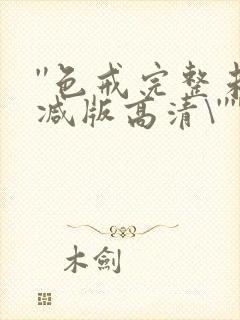 "色戒完整未
减版高清\""
木劍